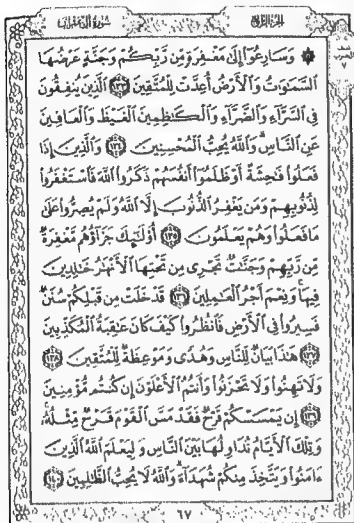 سُورَةُ آلِ عِمْرَانَ الجُزْءُ الرَّابِعُ
۞ وَسَارِعُوٓا۟ إِلَىٰ مَغْفِرَةٍ مِّن رَّبِّكُمْ وَجَنَّةٍ عَرْضُهَا
ٱلسَّمَٰوَٰتُ وَٱلْأَرْضُ أُعِدَّتْ لِلْمُتَّقِينَ ١٣٣ ٱلَّذِينَ يُنفِقُونَ
فِى ٱلسَّرَّآءِ وَٱلضَّرَّآءِ وَٱلْكَٰظِمِينَ ٱلْغَيْظَ وَٱلْعَافِينَ
عَنِ ٱلنَّاسِ ۗ وَٱللَّهُ يُحِبُّ ٱلْمُحْسِنِينَ ١٣٤ وَٱلَّذِينَ إِذَا
فَعَلُوا۟ فَٰحِشَةً أَوْ ظَلَمُوٓا۟ أَنفُسَهُمْ ذَكَرُوا۟ ٱللَّهَ فَٱسْتَغْفَرُوا۟
لِذُنُوبِهِمْ وَمَن يَغْفِرُ ٱلذُّنُوبَ إِلَّا ٱللَّهُ وَلَمْ يُصِرُّوا۟ عَلَىٰ
مَا فَعَلُوا۟ وَهُمْ يَعْلَمُونَ ١٣٥ أُو۟لَٰٓئِكَ جَزَآؤُهُم مَّغْفِرَةٌ
مِّن رَّبِّهِمْ وَجَنَّٰتٌ تَجْرِى مِن تَحْتِهَا ٱلْأَنْهَٰرُ خَٰلِدِينَ
فِيهَا ۚ وَنِعْمَ أَجْرُ ٱلْعَٰمِلِينَ ١٣٦ قَدْ خَلَتْ مِن قَبْلِكُمْ سُنَنٌ
فَسِيرُوا۟ فِى ٱلْأَرْضِ فَٱنظُرُوا۟ كَيْفَ كَانَ عَٰقِبَةُ ٱلْمُكَذِّبِينَ
١٣٧ هَٰذَا بَيَانٌ لِّلنَّاسِ وَهُدًى وَمَوْعِظَةٌ لِّلْمُتَّقِينَ ١٣٨
وَلَا تَهِنُوا۟ وَلَا تَحْزَنُوا۟ وَأَنتُمُ ٱلْأَعْلَوْنَ إِن كُنتُم مُّؤْمِنِينَ
١٣٩ إِن يَمْسَسْكُمْ قَرْحٌ فَقَدْ مَسَّ ٱلْقَوْمَ قَرْحٌ مِّثْلُهُۥ ۚ
وَتِلْكَ ٱلْأَيَّامُ نُدَاوِلُهَا بَيْنَ ٱلنَّاسِ وَلِيَعْلَمَ ٱللَّهُ ٱلَّذِينَ
ءَامَنُوا۟ وَيَتَّخِذَ مِنكُمْ شُهَدَآءَ ۗ وَٱللَّهُ لَا يُحِبُّ ٱلظَّٰلِمِينَ ١٤٠
٦٧